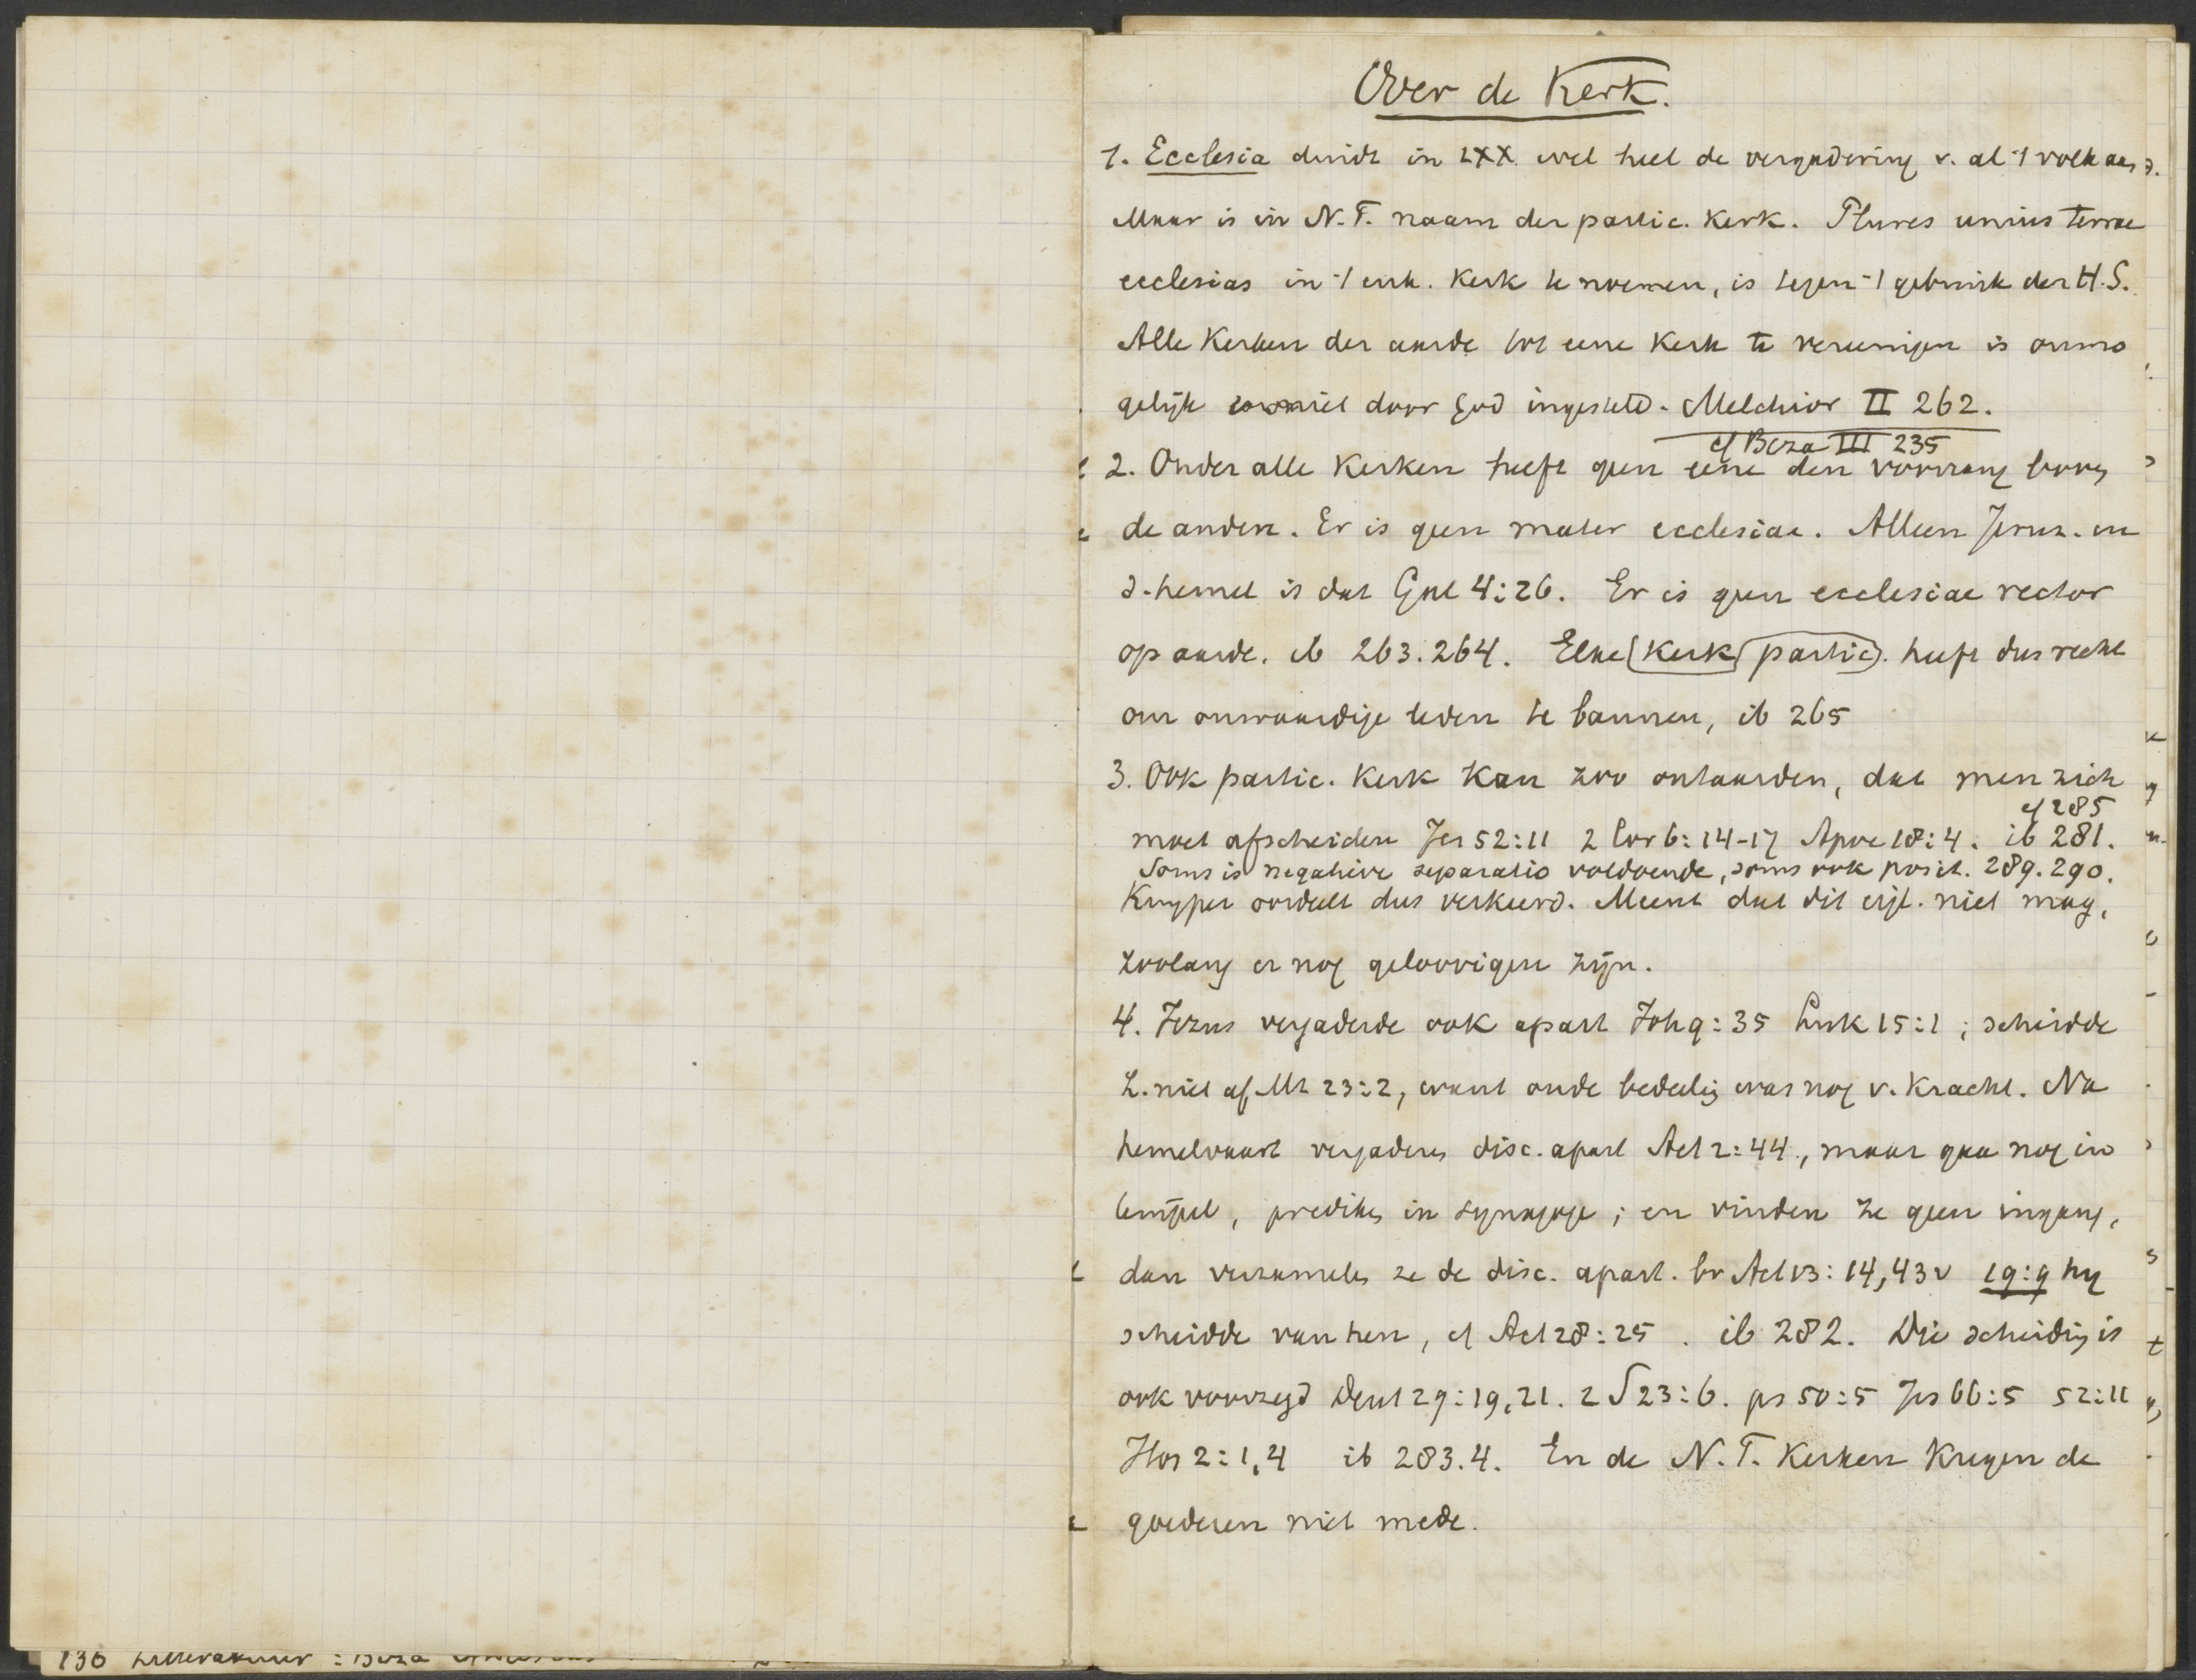 Over de Kerk.
1. Ecclesia duidt in LXX wel heel de vergadering v. al 't volk aan.
Maar is in N.T. naam der partic. Kerk. Plures unius terrae
ecclesias in 't enk. Kerk te noemen, is tegen 't gebruik der H.S.
Alle Kerken der aarde tot eene Kerk te vereenigen is onmo
gelijk niet door God ingesteld. Melchior II 262.
cf Beza III 235
2. Onder alle Kerken heeft geen eene den voorrang boven
de andere. Er is geen mater ecclesiae. Alleen Jeruz. in
d. hemel is dat Gal 4:26. Er is geen ecclesiae rector
op aarde. ib 263.264. Elke (Kerk) (partic). heeft dus recht
om onwaardige leden te bannen, ib 265
3. Ook partic. Kerk Kan zoo ontaarden, dat men zich
cf 285
moet afscheiden Jes 52:11 2 Cor 6:14-17 Apoc 18:4. ib 281.
Soms is negatieve separatio voldoende, soms ook posit. 289.290.
Kuyper oordeelt dus verkeerd. Meent dat dit eigl. niet mag,
zoolang er nog geloovigen zijn.
4. Jezus vergaderde ook apart Joh 9:35 Luk 15:1; scheidde
Z. niet af Mt 23:2, want oude bedeelig was nog v. Kracht. Na
hemelvaart vergaderen disc. apart Act 2:44, maar gaan nog in
tempel, prediken in synagoge; en vinden ze geen ingang,
dan verzamelen ze de disc. apart. bv Act 13:14,43v 19:9 hij
scheidde van hen, cf Act 28:25. ib 282. Die scheidig is
ook voorzegd Deut 29:19,21. 2 S 23:6. ps 50:5 Jes 66:5 52:11
Hos 2:1,4 ib 283.4. En de N.T. Kerken Kregen de
goederen niet mede.
136 Litteratuur: Beza